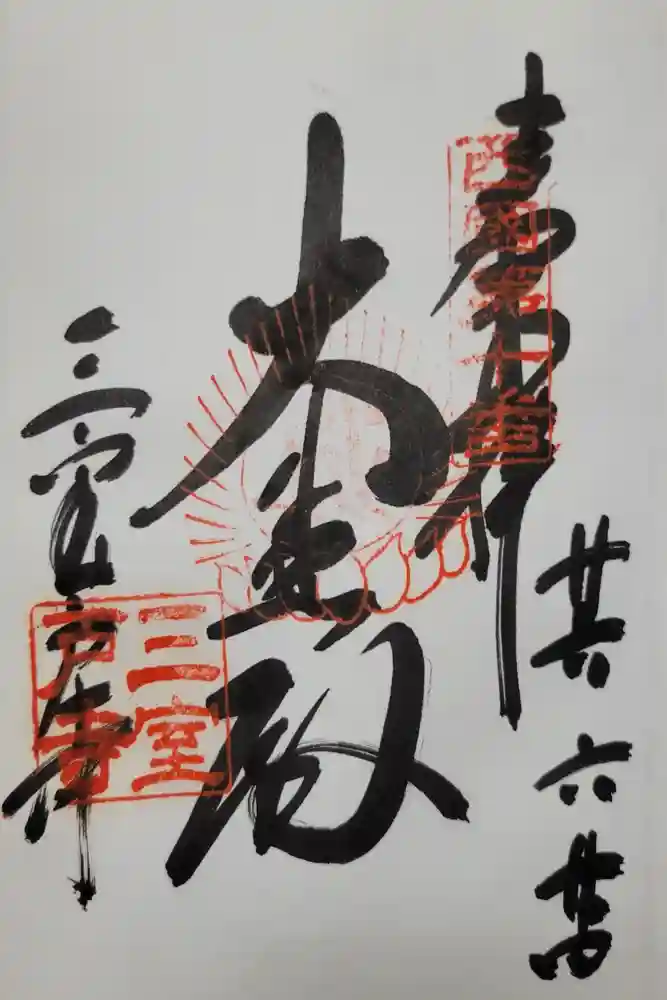 奉拝
西國第十番
廿八 六
大悲殿
三室戸寺
三室
戸寺